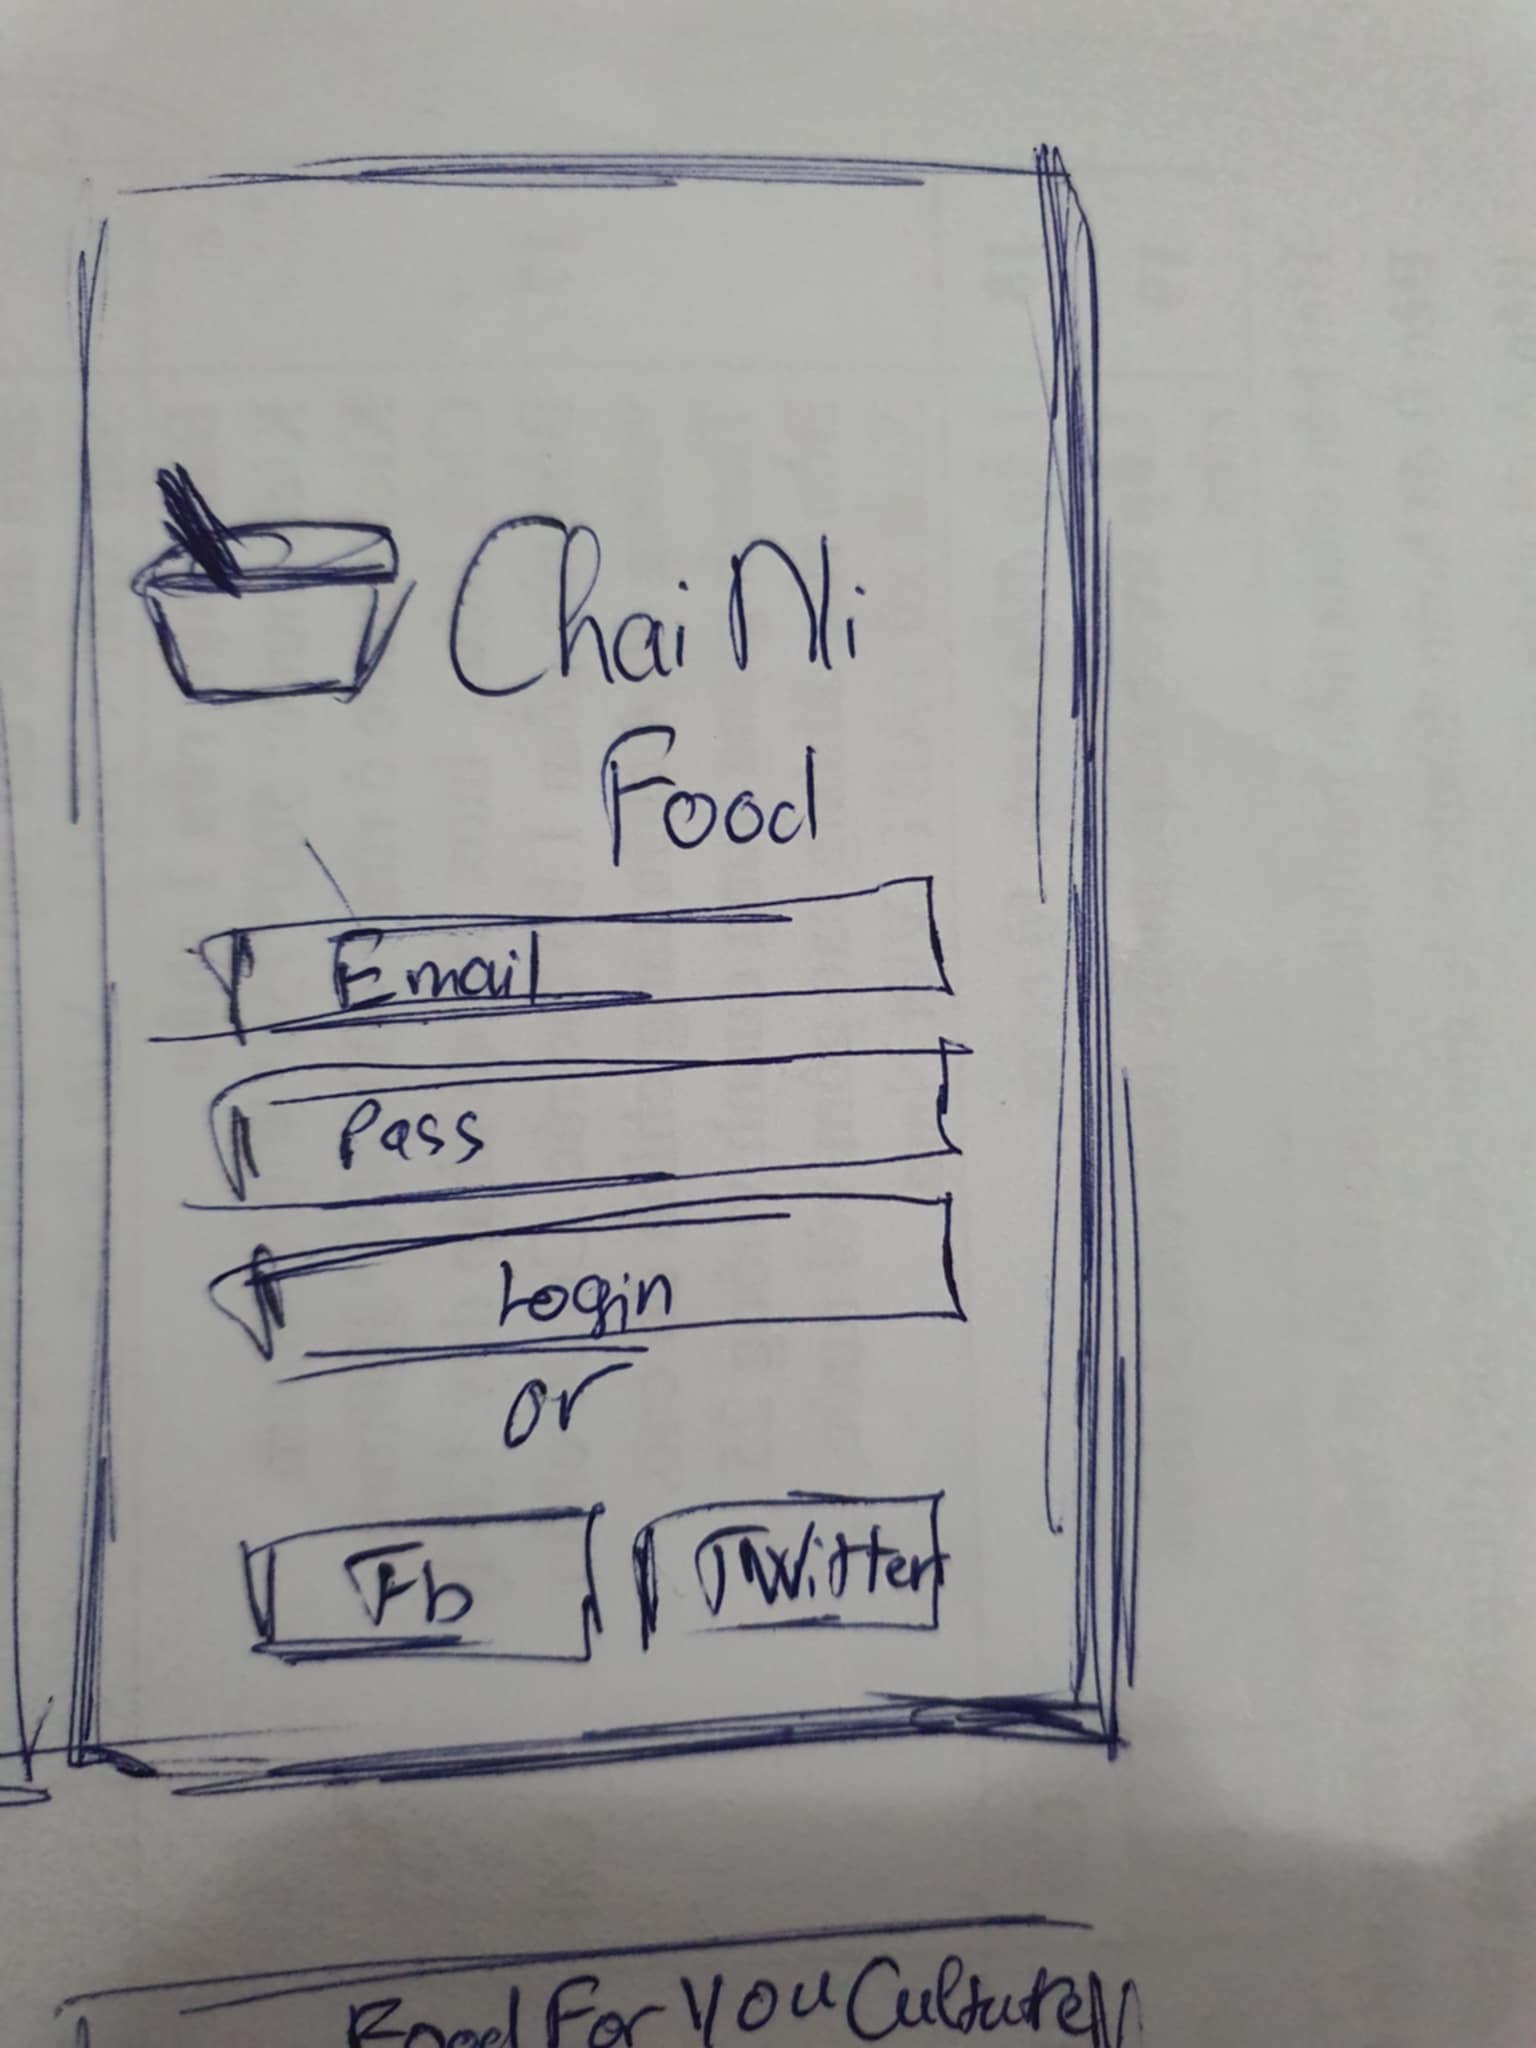 Chai Ni
Food
Email
Pass
Login
or
Fb
Twitter
Food For You Culture